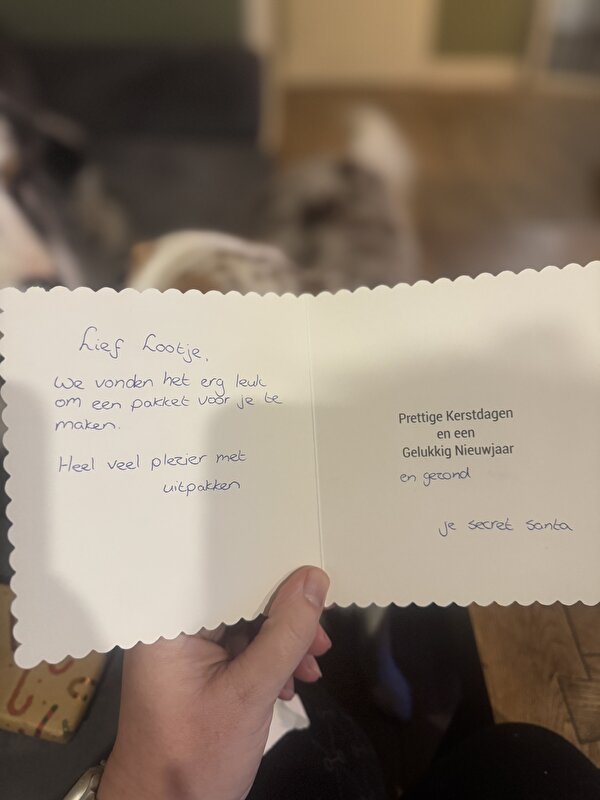 Lief Lootje,
We vonden het erg leuk
om een pakket voor je te
maken.
Heel veel plezier met
uitpakken
Prettige Kerstdagen
en een
Gelukkig Nieuwjaar
en gezond
je secret santa